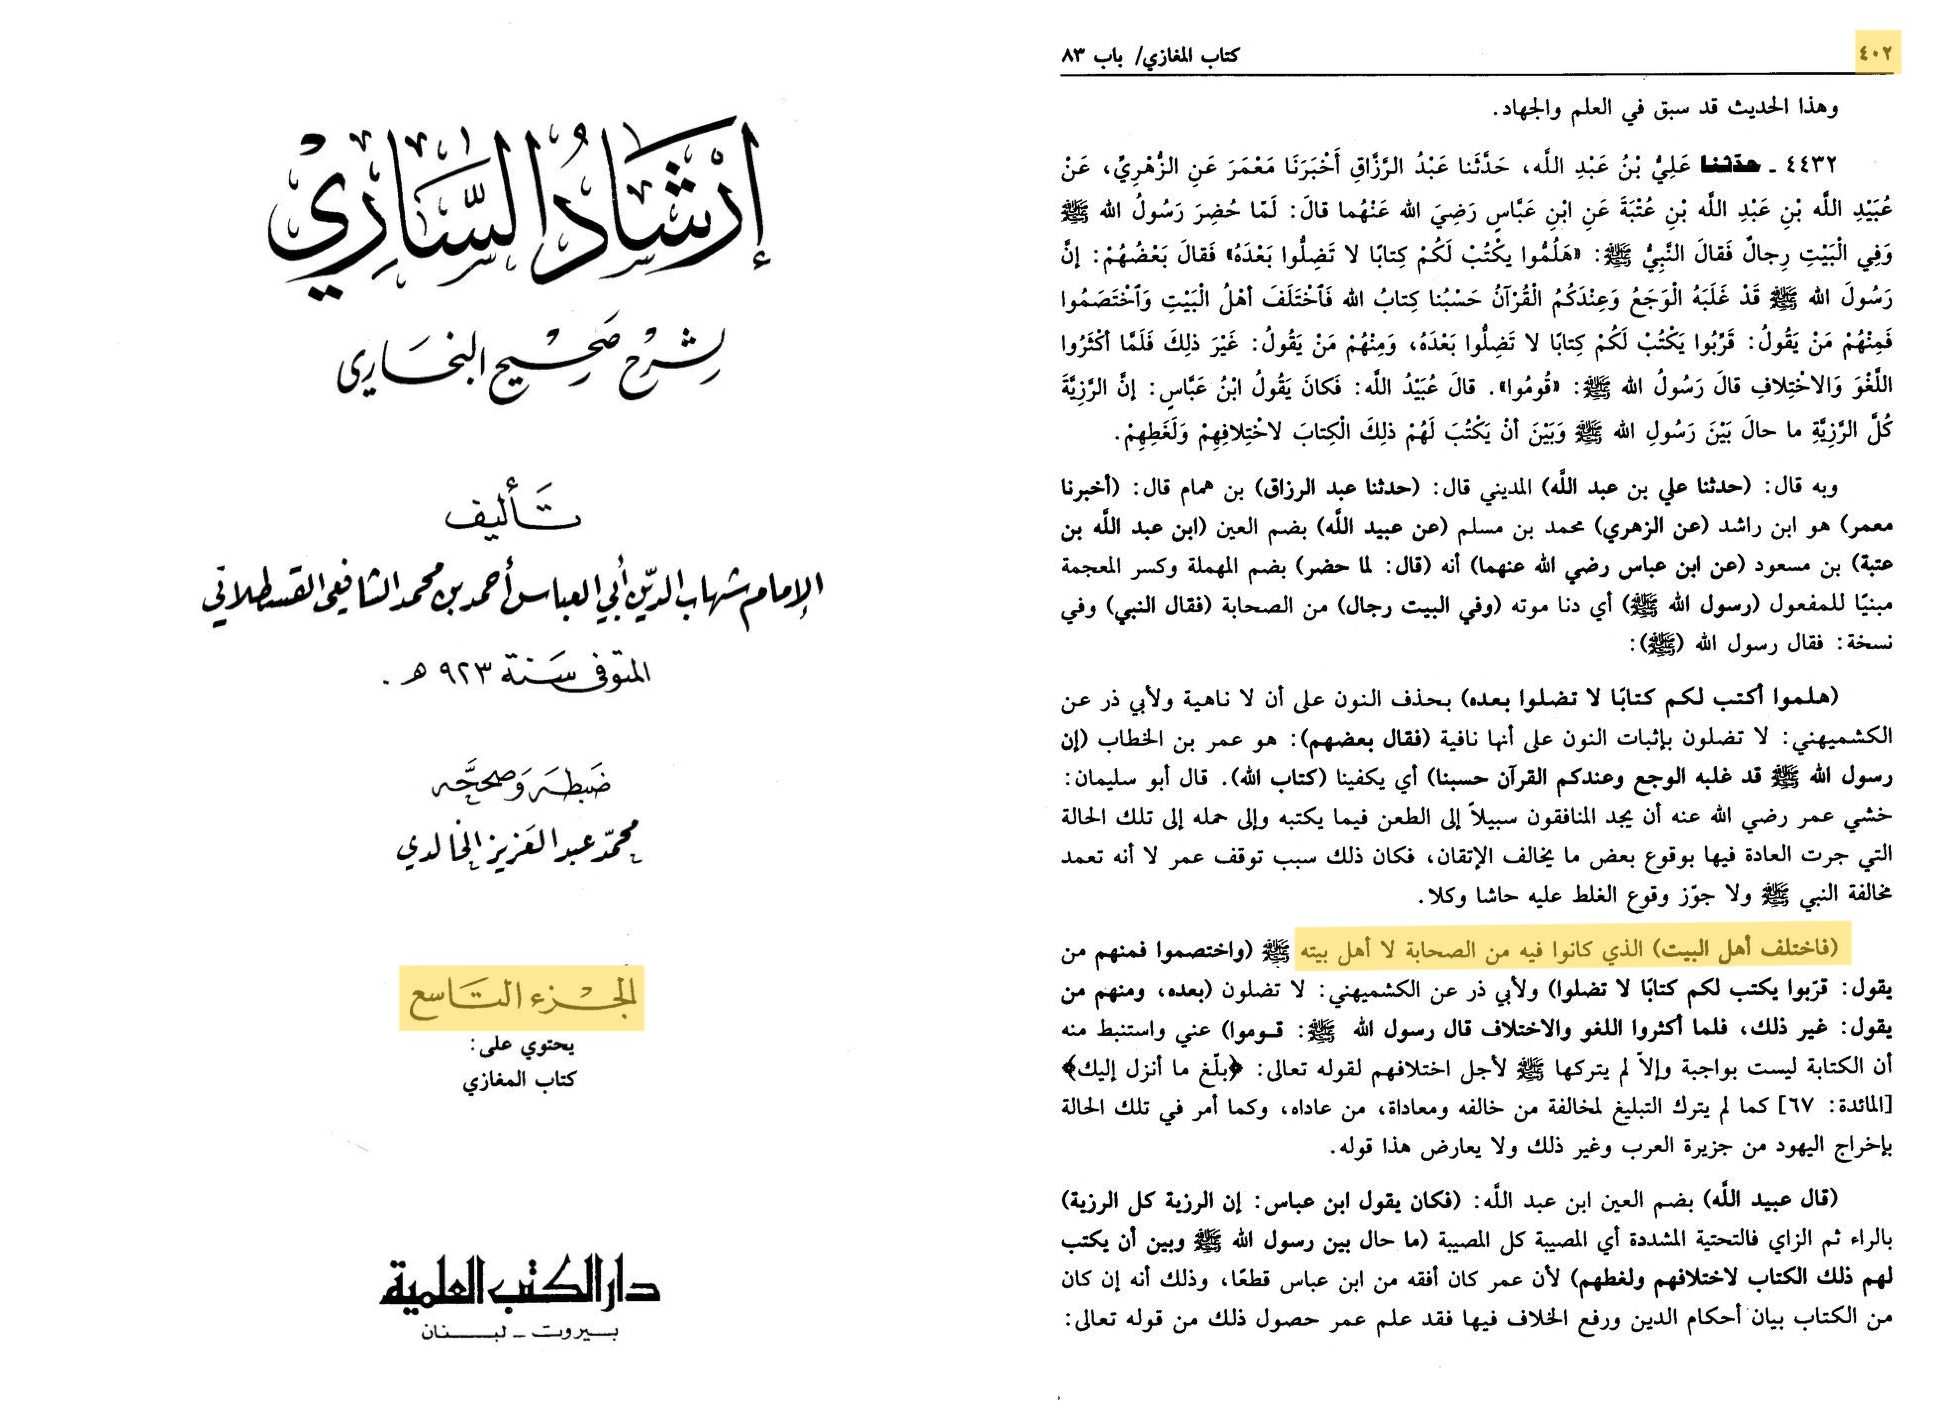 إرشاد الساري
لشرح صحيح البخاري
تأليف
الإمام شهاب الدين أبي العباس أحمد بن محمد الشافعي القسطلاني
المتوفى سنة ٩٢٣ هـ.
ضبطه وصححه
محمد عبد العزيز الخالدي
الجزء التاسع
يحتوي على:
كتاب المغازي
دار الكتب العلمية
بيروت - لبنان
٤٠٢
كتاب المغازي/ باب ٨٣
وهذا الحديث قد سبق في العلم والجهاد.
٤٤٣٢ ـ حدّثنا عَلِيُّ بْنُ عَبْدِ اللَّه، حَدَّثَنا عَبْدُ الرَّزَّاقِ أَخْبَرَنَا مَعْمَرَ عَنِ الزُّهْرِيِّ، عَنْ
عُبَيْدِ اللَّه بْنِ عَبْدِ اللَّه بْنِ عُتْبَةَ عَنِ ابْنِ عَبَّاسٍ رَضِيَ الله عَنْهُما قالَ: لَمّا حُضِرَ رَسُولُ الله ﷺ
وَفِي الْبَيْتِ رِجالٌ فَقالَ النَّبِيُّ ﷺ: «هَلُمُّوا يكْتُبْ لَكُمْ كِتابًا لا تَضِلُّوا بَعْدَهُ» فَقالَ بَعْضُهُمْ: إنَّ
رَسُولَ الله ﷺ قَدْ غَلَبَهُ الْوَجَعُ وَعِنْدَكُمُ الْقُرْآنُ حَسْبُنا كِتابُ الله فَاخْتَلَفَ أهْلُ الْبَيْتِ وَاخْتَصَمُوا
فَمِنْهُمْ مَنْ يَقُولُ: قَرِّبُوا يَكْتُبْ لَكُمْ كِتابًا لا تَضِلُّوا بَعْدَهُ، وَمِنْهُمْ مَنْ يَقُولُ: غَيْرَ ذلِكَ فَلَمَّا أكْثَرُوا
اللَّغْوَ وَالاخْتِلافِ قالَ رَسُولُ الله ﷺ: «قُومُوا». قالَ عُبَيْدُ اللَّه: فَكانَ يَقُولُ ابْنُ عَبَّاسٍ: إنَّ الرَّزِيَّةَ
كُلَّ الرَّزِيَّةِ ما حالَ بَيْنَ رَسُولِ الله ﷺ وَبَيْنَ أنْ يَكْتُبَ لَهُمْ ذلِكَ الْكِتابَ لاخْتِلافِهِمْ وَلَغَطِهِمْ.
وبه قال: (حدثنا علي بن عبد اللَّه) المديني قال: (حدثنا عبد الرزاق) بن همام قال: (أخبرنا
معمر) هو ابن راشد (عن الزهري) محمد بن مسلم (عن عبيد اللَّه) بضم العين (ابن عبد اللَّه بن
عتبة) بن مسعود (عن ابن عباس رضي الله عنهما) أنه (قال: لما حضر) بضم المهملة وكسر المعجمة
مبنيًا للمفعول (رسول الله ﷺ) أي دنا موته (وفي البيت رجال) من الصحابة (فقال النبي) وفي
نسخة: فقال رسول الله (ﷺ):
(هلموا أكتب لكم كتابًا لا تضلوا بعده) بحذف النون على أن لا ناهية ولأبي ذر عن
الكشميهني: لا تضلون بإثبات النون على أنها نافية (فقال بعضهم): هو عمر بن الخطاب (إن
رسول الله ﷺ قد غلبه الوجع وعندكم القرآن حسبنا) أي يكفينا (كتاب الله). قال أبو سليمان:
خشي عمر رضي الله عنه أن يجد المنافقون سبيلاً إلى الطعن فيما يكتبه وإلى حمله إلى تلك الحالة
التي جرت العادة فيها بوقوع بعض ما يخالف الإتقان، فكان ذلك سبب توقف عمر لا أنه تعمد
مخالفة النبي ﷺ ولا جوّز وقوع الغلط عليه حاشا وكلا.
(فاختلف أهل البيت) الذي كانوا فيه من الصحابة لا أهل بيته ﷺ (واختصموا فمنهم من
يقول: قرّبوا يكتب لكم كتابًا لا تضلوا) ولأبي ذر عن الكشميهني: لا تضلون (بعده، ومنهم من
يقول: غير ذلك، فلما أكثروا اللغو والاختلاف قال رسول الله ﷺ: قوموا) عني واستنبط منه
أن الكتابة ليست بواجبة وإلاّ لم يتركها ﷺ لأجل اختلافهم لقوله تعالى: ﴿بلّغ ما أنزل إليك﴾
[المائدة: ٦٧] كما لم يترك التبليغ لمخالفة من خالفه ومعاداة، من عاداه، وكما أمر في تلك الحالة
بإخراج اليهود من جزيرة العرب وغير ذلك ولا يعارض هذا قوله.
(قال عبيد اللَّه) بضم العين ابن عبد اللَّه: (فكان يقول ابن عباس: إن الرزية كل الرزية)
بالراء ثم الزاي فالتحتية المشددة أي المصيبة كل المصيبة (ما حال بين رسول الله ﷺ وبين أن يكتب
لهم ذلك الكتاب لاختلافهم ولغطهم) لأن عمر كان أفقه من ابن عباس قطعًا، وذلك أنه إن كان
من الكتاب بيان أحكام الدين ورفع الخلاف فيها فقد علم عمر حصول ذلك من قوله تعالى: